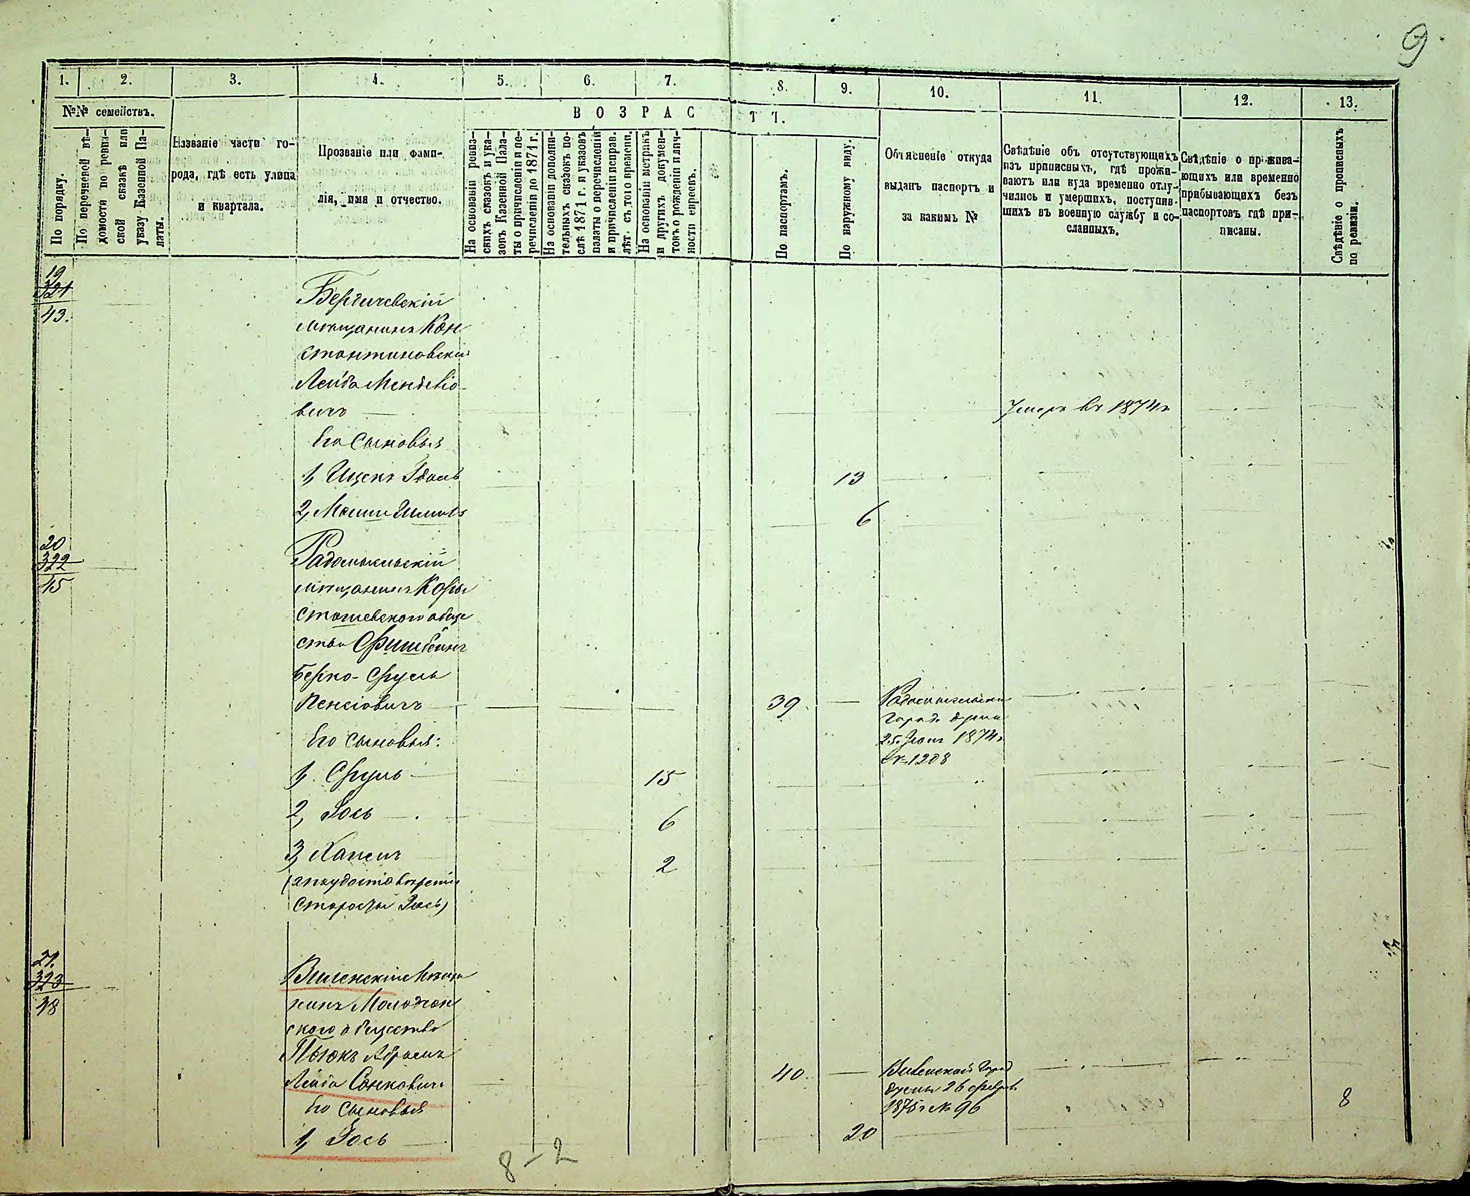 9
1. 2. 3. 4. 5. 6. 7. 8. 9. 10. 11. 12. 13.
№№ семействъ.
По порядку.
По перечневой вѣ-
домости по ревиз-
ской сказкѣ или
указу Казенной Па-
латы.
Названіе части го-
рода, гдѣ есть улица
и квартала.
Прозваніе или фами-
лія, имя и отчество.
ВОЗРАСТЪ.
На основаніи ревиз-
скихъ сказокъ и ука-
зовъ Казенной Пала-
ты о причисленіи и пе-
речисленіи до 1871 г.
На основаніи дополни-
тельныхъ сказокъ по-
слѣ 1871 г. и указовъ
палаты о перечисленіи
и причисленіи исправ.
лѣт. съ того времени.
На основаніи метрикъ
и другихъ докумен-
товъ о рожденіи и лич-
ности евреевъ.
По паспортамъ.
По наружному виду.
Объясненіе откуда
выданъ паспортъ и
за какимъ №
Свѣдѣніе объ отсутствующихъ
изъ приписныхъ, гдѣ прожи-
ваютъ или куда временно отлу-
чились и умершихъ, поступив-
шихъ въ военную службу и со-
сланныхъ.
Свѣдѣніе о прожива-
ющихъ или временно
прибывающихъ безъ
паспортовъ гдѣ при-
писаны.
Свѣдѣніе о прописныхъ
по ревизіи.
19
321
43.
Бердичевскій
мѣщанинъ Кон
стантиновскій
Лейба Менделіо-
вичъ
Умеръ въ 1874 г
Его сыновья
1, Ицекъ 13
2, Мошко 6
20
322
45
Радомысльскій
мѣщанинъ Коры
стошевского обще
ства Фишбейнъ
Берко-Сруль
39
Радомысльской
Город. Думы
25 1874 г
№ 1208
Его сыновья:
1, Сруль 15
2, Іось 6
3, 2
старосты Іось)
21.
323
48
Виленскій Мѣща
нинъ Молодечан
ского общества
Пызюкъ Абрамъ
Лейба
40
Виленской Город
Думы 26 Феврал
1875 г № 96
Его сыновья
8
1, Іось 20
8-2